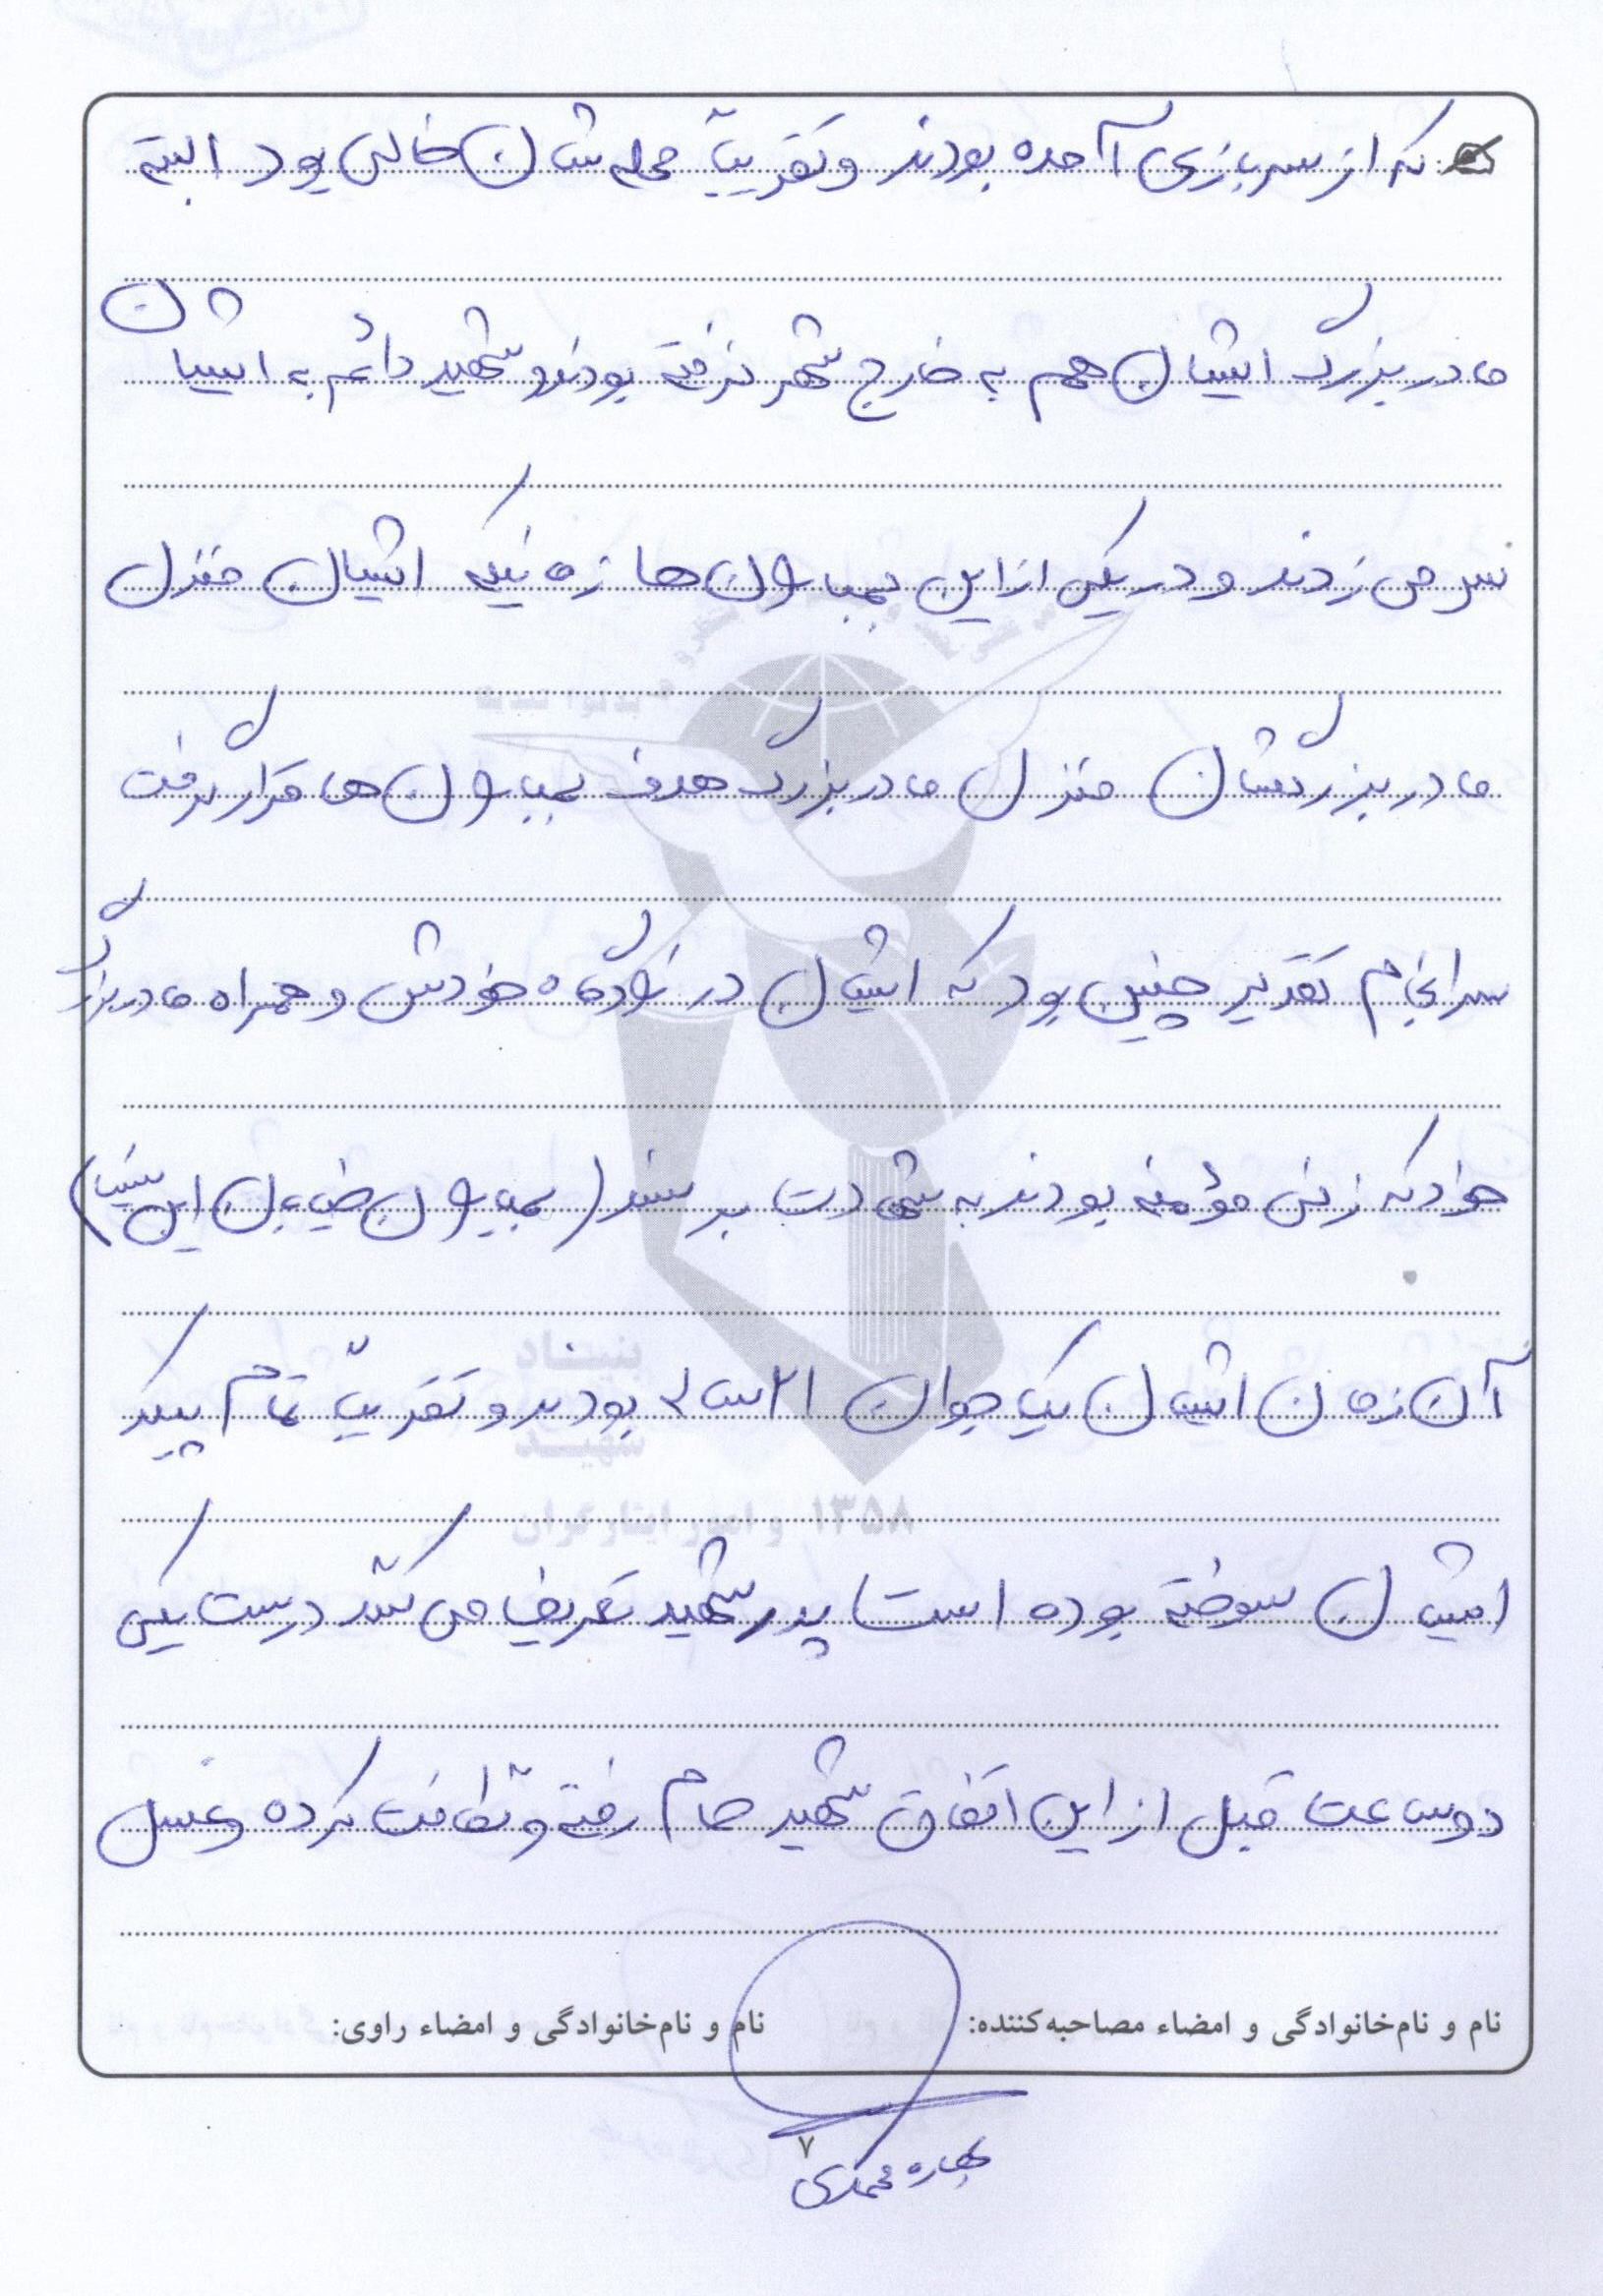 که از سربازی آمده بودند و تقریباً محله شان خالی بود البته
مادربزرگ ایشان هم به خارج شهر نرفته بودند و شهید دائم به ایشان
سر می زدند و در یکی از این بمباران ها زمانیکه ایشان منزل
مادربزرگشان منزل مادربزرگ هدف بمباران ها قرار گرفت
سرانجام تقدیر چنین بود که ایشان در زادگاه خودش و همراه مادربزرگ
خود که زنی مؤمنه بودند به شهادت برسند (بمباران خیابان ابن سینا)
آن زمان ایشان یک جوان ۲۱ ساله بودند و تقریباً تمام پیکر
ایشان سوخته بوده است پدر شهید تعریف می کند درست یکی
دو ساعت قبل از این اتفاق شهید حمام رفته و نظافت کرده و غسل
نام و نام‌خانوادگی و امضاء مصاحبه‌کننده: نام و نام‌خانوادگی و امضاء راوی:
۷
بهاره محمدی
بنیاد
شهید
و امور ایثارگران ۱۳۵۸